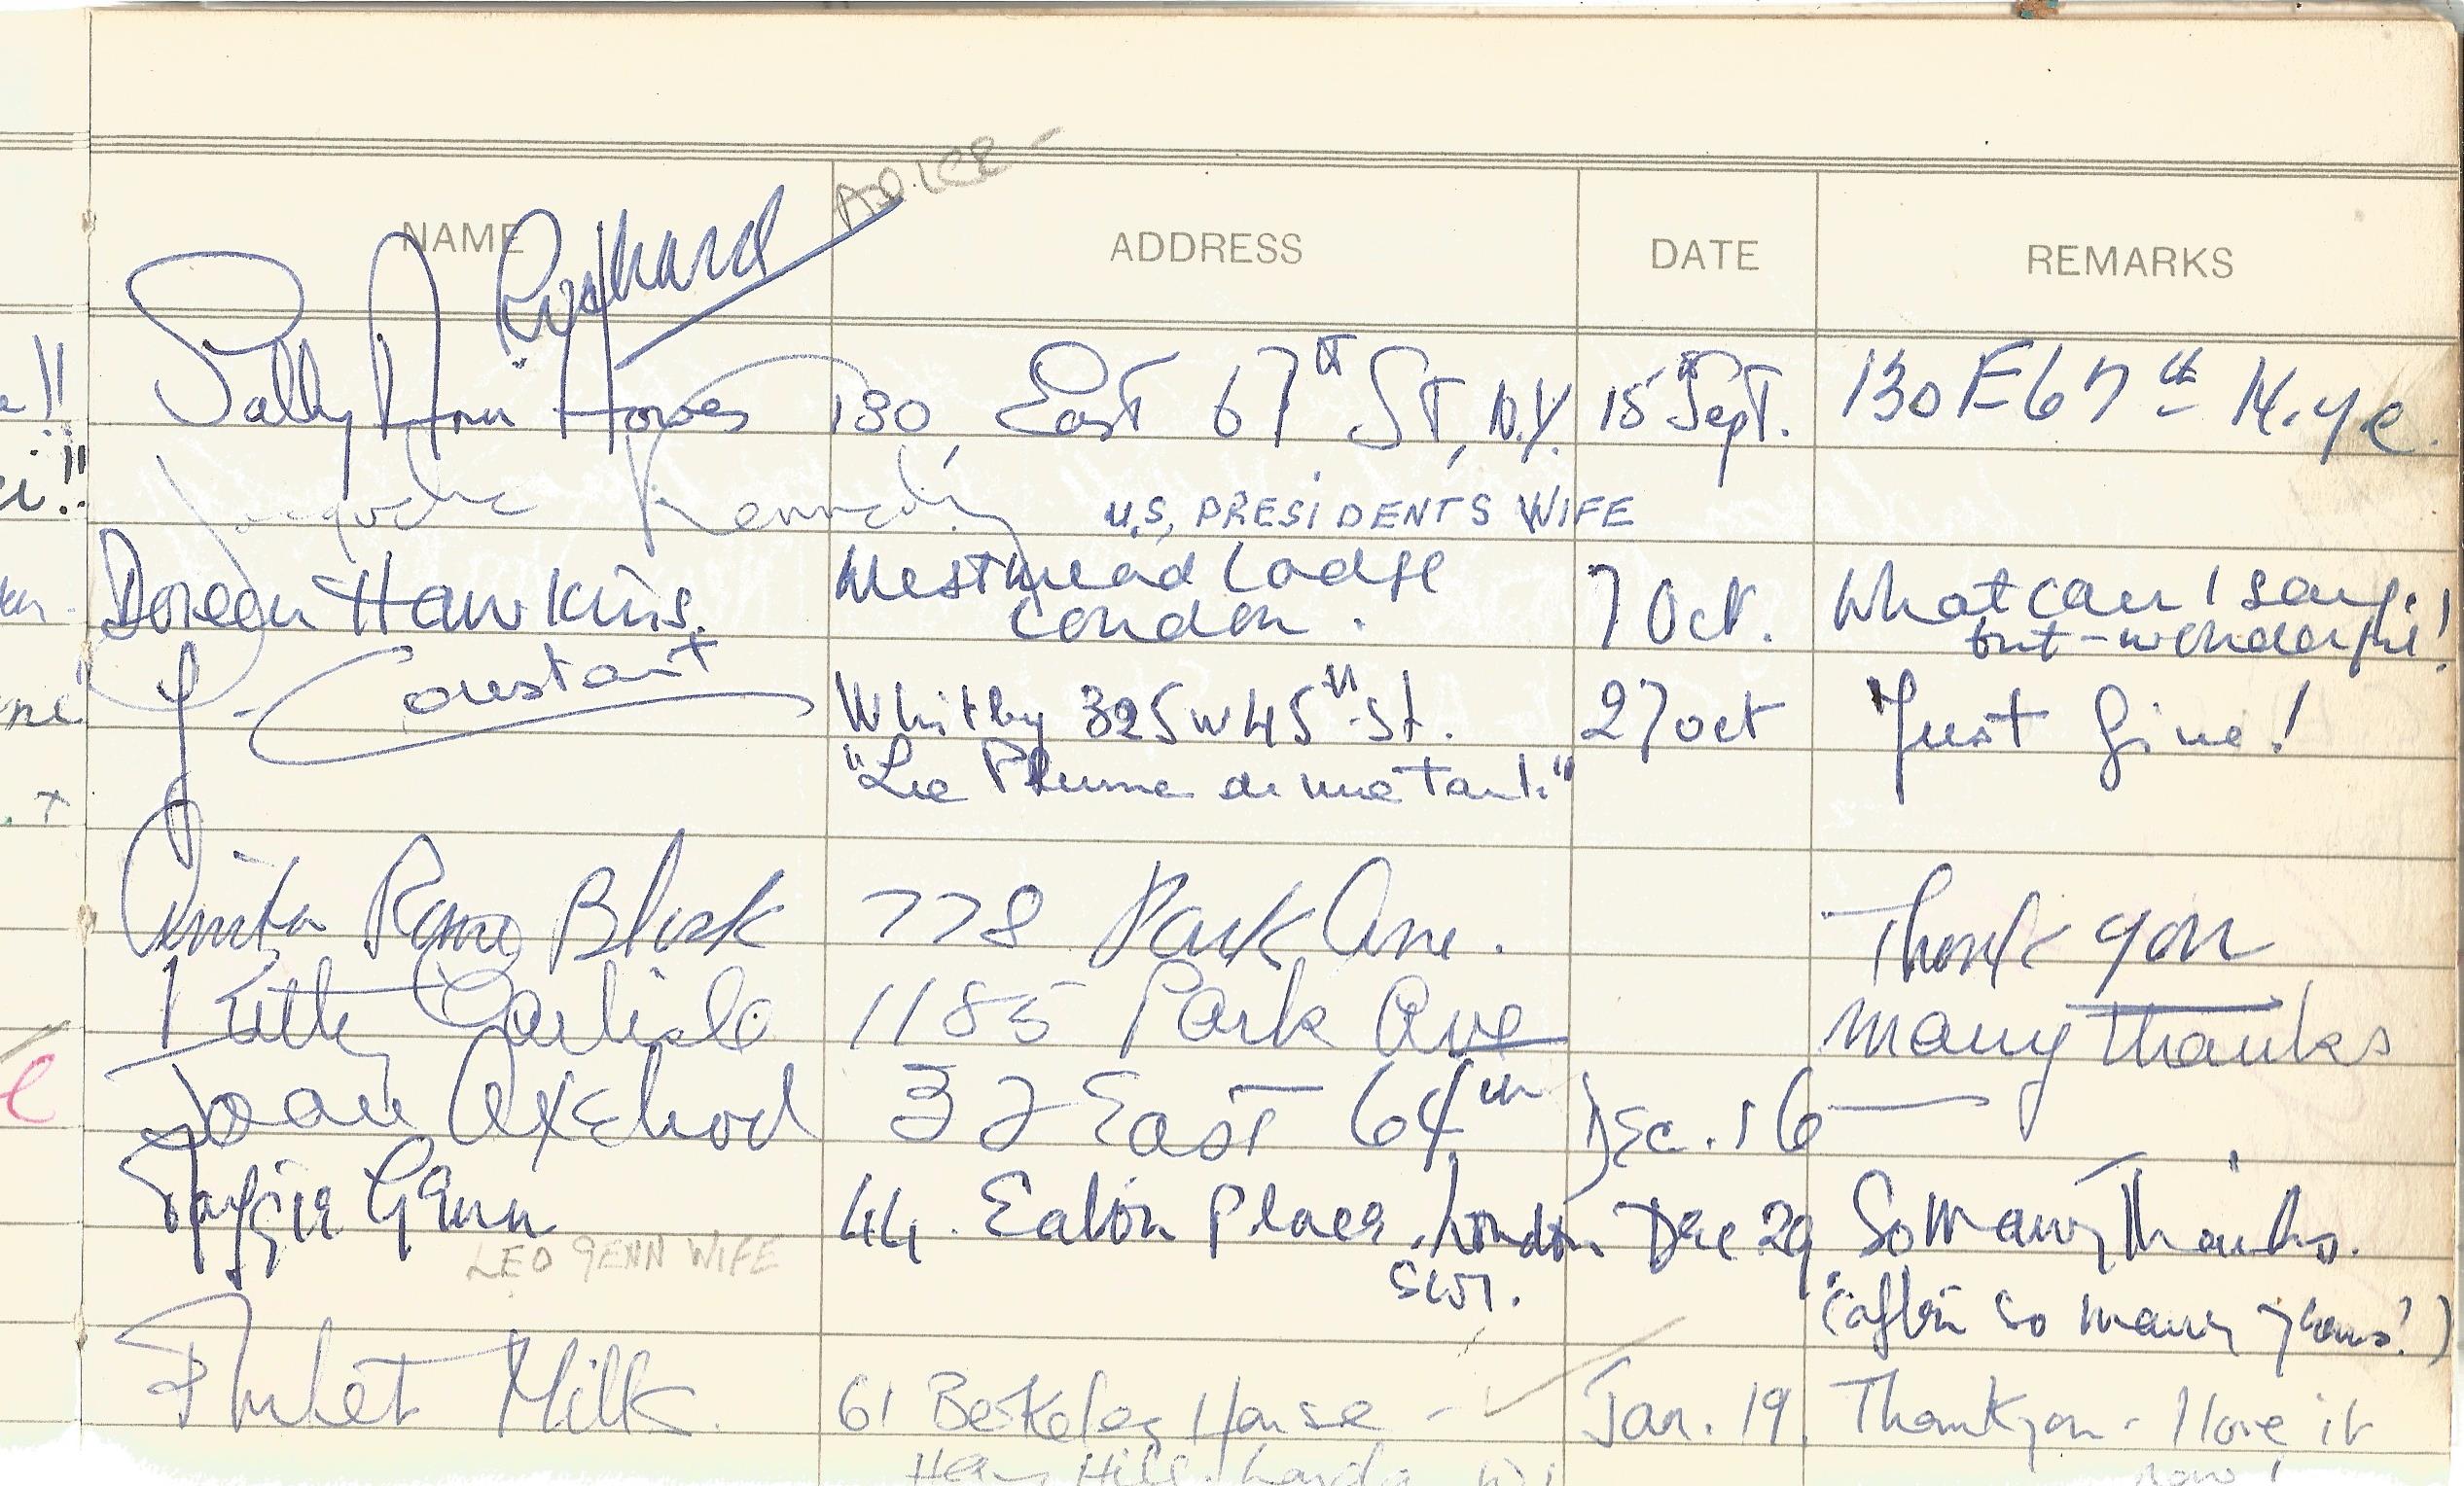 NAME ADDRESS DATE REMARKS
Sally Ann Howes 130, East 67th St, N.Y. 15th Sept. 130 E 67th N.Y.C.
Jacqueline Kennedy U.S. PRESIDENT'S WIFE
Doreen Hawkins. Westmead Lodge London. 7 Oct. What can I say. but - wonderful!
Constant Whitby 325 W 45th St. 27 Oct Just fine!
"La Plume de ma Tante."
Anita Block 778 Park Ave. Thank you
Kitty Carlisle 1185 Park Ave many thanks
Joan Axelrod 32 East 64th Dec. 16
Genn 44. Eaton Place. London SW1. Dec 29 So many Thanks.
LEO GENN WIFE (after so many years!)
Milk. 61 Berkeley House - Jan. 19. Thank you - I love it
Hay Hill. London W1 now!